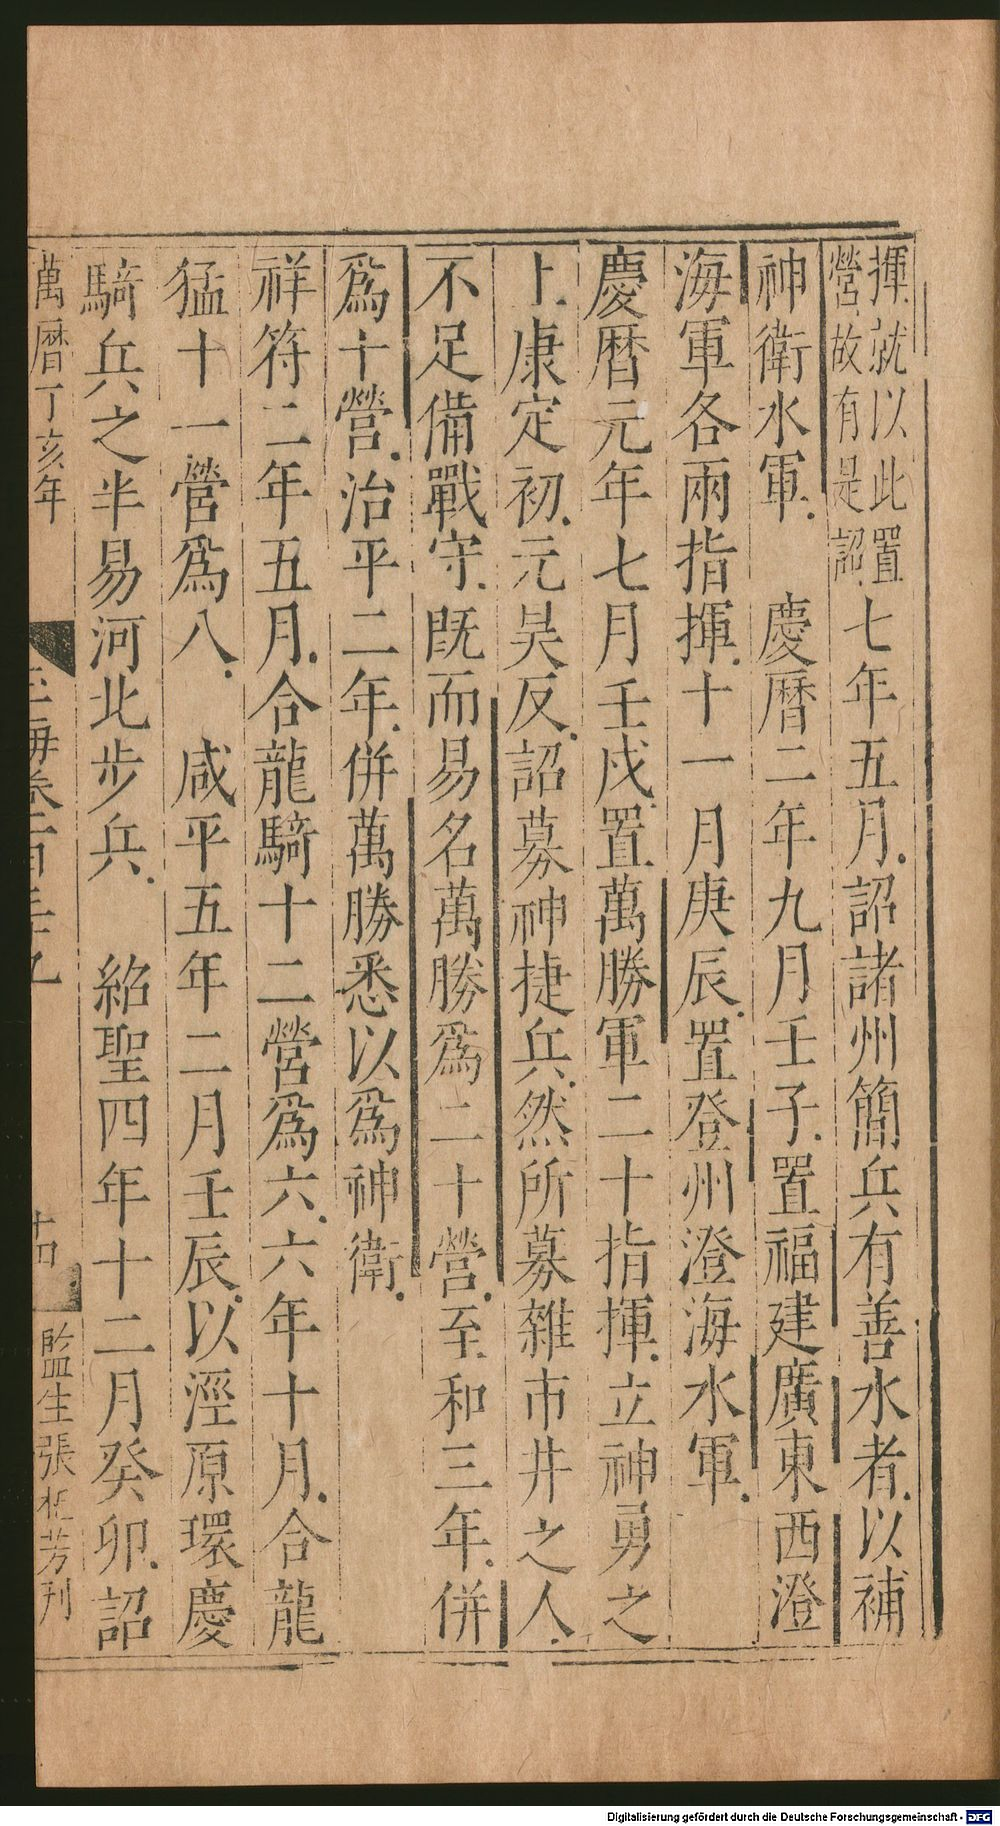 揮就以此置
營故有是詔七年五月詔諸州簡兵有善水者以補
神衛水軍　慶曆二年九月壬子置福建廣東西澄
海軍各兩指揮十一月庚辰置登州澄海水軍
慶曆元年七月壬戌置萬勝軍二十指揮立神勇之
上康定初元昊反詔募神捷兵然所募雜市井之人
不足備戰守既而易名萬勝爲二十營至和三年併
爲十營治平二年併萬勝悉以爲神衛
祥符二年五月合龍騎十二營爲六六年十月合龍
猛十一營爲八　咸平五年二月壬辰以涇原環慶
騎兵之半易河北步兵　紹聖四年十二月癸卯詔
萬曆丁亥年
玉海卷一百三十九
十四
監生張 芳刊
Digitalisierung gefördert durch die Deutsche Forschungsgemeinschaft - DFG